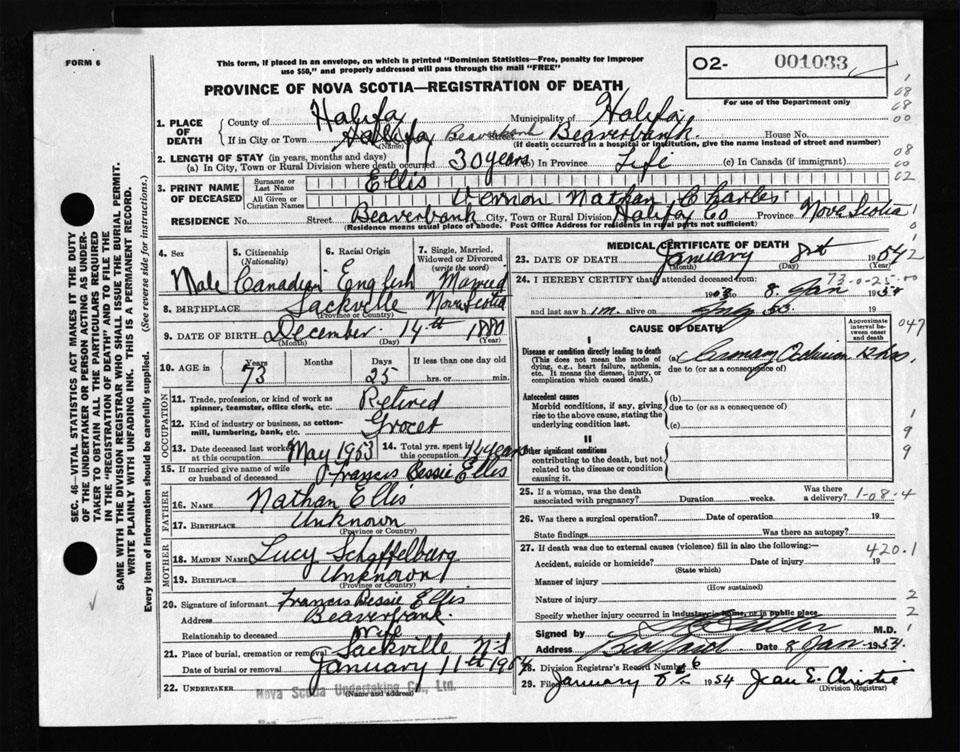 FORM 6
This form, if placed in an envelope, on which is printed "Dominion Statistics—Free, penalty for improper
use $50," and properly addressed will pass through the mail "FREE"
02- 001033
PROVINCE OF NOVA SCOTIA—REGISTRATION OF DEATH
For use of the Department only
1. PLACE OF DEATH
County of Halifax Municipality of Halifax
If in City or Town Halifax Beaverbank Beaverbank. House No.
(Name) (If death occurred in a hospital or institution, give the name instead of street and number)
2. LENGTH OF STAY (in years, months and days)
(a) In City, Town or Rural Division where death occurred 30 years (b) In Province Life (c) In Canada (if immigrant)
3. PRINT NAME OF DECEASED
Surname or Last Name Ellis
All Given or Christian Names Vernon Nathan Charles
RESIDENCE No. Street Beaverbank City, Town or Rural Division Halifax Co Province Nova Scotia
(Residence means usual place of abode. Post Office Address for residents in rural parts not sufficient)
4. Sex Male
5. Citizenship (Nationality) Canadian
6. Racial Origin English
7. Single, Married, Widowed or Divorced (write the word) Married
8. BIRTHPLACE Sackville Nova Scotia
(Province or Country)
9. DATE OF BIRTH December 14th 1880
(Month) (Day) (Year)
10. AGE in Years 73 Months Days 25 If less than one day old
hrs. or min.
OCCUPATION
11. Trade, profession, or kind of work as spinner, teamster, office clerk, etc. Retired
12. Kind of industry or business, as cotton-mill, lumbering, bank, etc. Grocer
13. Date deceased last worked at this occupation May 1953 14. Total yrs. spent in this occupation 14 years
15. If married give name of wife or husband of deceased Francis Bessie Ellis
FATHER
16. NAME Nathan Ellis
17. BIRTHPLACE Unknown
(Province or Country)
MOTHER
18. MAIDEN NAME Lucy Schaffelburg
19. BIRTHPLACE Unknown
(Province or Country)
20. Signature of informant Francis Bessie Ellis
Address Beaverbank.
Relationship to deceased Wife
21. Place of burial, cremation or removal Sackville N.S
Date of burial or removal January 11th 1954
22. UNDERTAKER Nova Scotia Undertaking Co., Ltd.
(Name and address)
MEDICAL CERTIFICATE OF DEATH
23. DATE OF DEATH January 8th 1954
(Month) (Day) (Year)
24. I HEREBY CERTIFY that I attended deceased from:
73-0-25
8 Jan 1954
and last saw him alive on 19
CAUSE OF DEATH
Approximate interval between onset and death
I
Disease or condition directly leading to death
(This does not mean the mode of dying, e.g., heart failure, asthenia, etc. It means the disease, injury, or complication which caused death.)
(a) Coronary Occlusion 12 hrs.
due to (or as a consequence of)
Antecedent causes
Morbid conditions, if any, giving rise to the above cause, stating the underlying condition last.
(b)
due to (or as a consequence of)
(c)
II
Other significant conditions
contributing to the death, but not related to the disease or condition causing it.
25. If a woman, was the death associated with pregnancy? Duration weeks. Was there a delivery? 1-08-4
26. Was there a surgical operation? Date of operation 19
State findings Was there an autopsy?
27. If death was due to external causes (violence) fill in also the following:
420.1
Accident, suicide or homicide? Date of injury 19
(State which)
Manner of injury
(How sustained)
Nature of injury
Specify whether injury occurred in industry, in home, or in public place
Signed by M.D.
Address Date 8 Jan 1954.
28. Division Registrar's Record Number 6
29. Filed January 8th 1954 Jean E. Christie
(Division Registrar)
SEC. 46—VITAL STATISTICS ACT MAKES IT THE DUTY
OF THE UNDERTAKER OR PERSON ACTING AS UNDER-
TAKER TO OBTAIN ALL THE PARTICULARS REQUIRED
IN THE "REGISTRATION OF DEATH" AND TO FILE THE
SAME WITH THE DIVISION REGISTRAR WHO SHALL ISSUE THE BURIAL PERMIT.
WRITE PLAINLY WITH UNFADING INK. THIS IS A PERMANENT RECORD.
Every item of information should be carefully supplied. (See reverse side for instructions.)
08
68
00
08
00
02
047
1
9
9
2
2
1